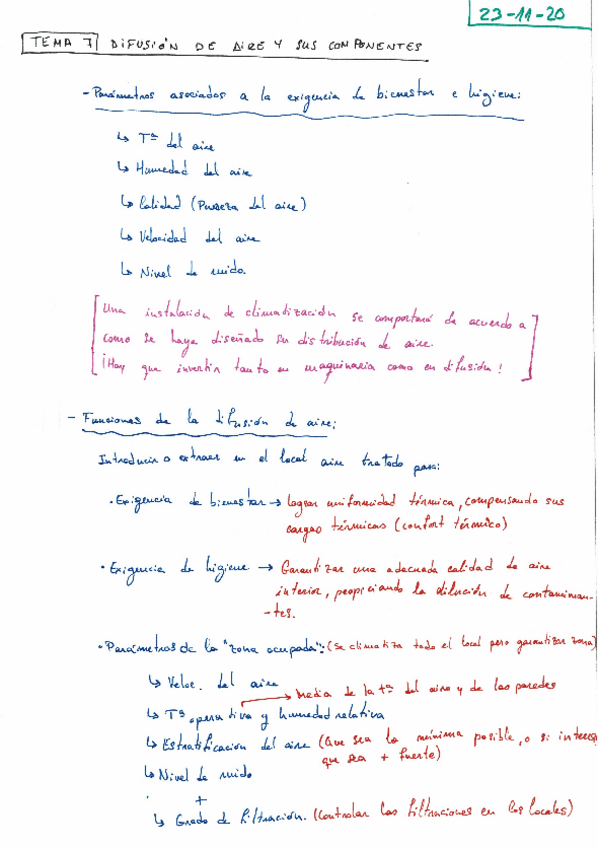 23-11-20
TEMA 7 DIFUSIÓN DE AIRE Y SUS COMPONENTES
- Parámetros asociados a la exigencia de bienestar e higiene:
↳ Tª del aire
↳ Humedad del aire
↳ Calidad (Pureza del aire)
↳ Velocidad del aire
↳ Nivel de ruido.
[Una instalación de climatización se comportará de acuerdo a
como se haya diseñado su distribución de aire.
¡Hay que invertir tanto en maquinaria como en difusión!]
- Funciones de la difusión de aire:
Introducir o extraer en el local aire tratado para:
· Exigencia de bienestar → lograr uniformidad térmica, compensando sus
cargas térmicas (confort térmico)
· Exigencia de higiene → Garantizar una adecuada calidad de aire
interior, propiciando la dilución de contaminan-
-tes.
· Parámetros de la "zona ocupada": (Se climatiza todo el local pero garantizar zona)
↳ Veloc. del aire
→ Media de la tª del aire y de las paredes
↳ Tª operativa y humedad relativa
↳ Estratificación del aire (Que sea la mínima posible, o si interesa
que sea + fuerte)
↳ Nivel de ruido
+
↳ Grado de filtración. (Controlar las filtraciones en los locales)